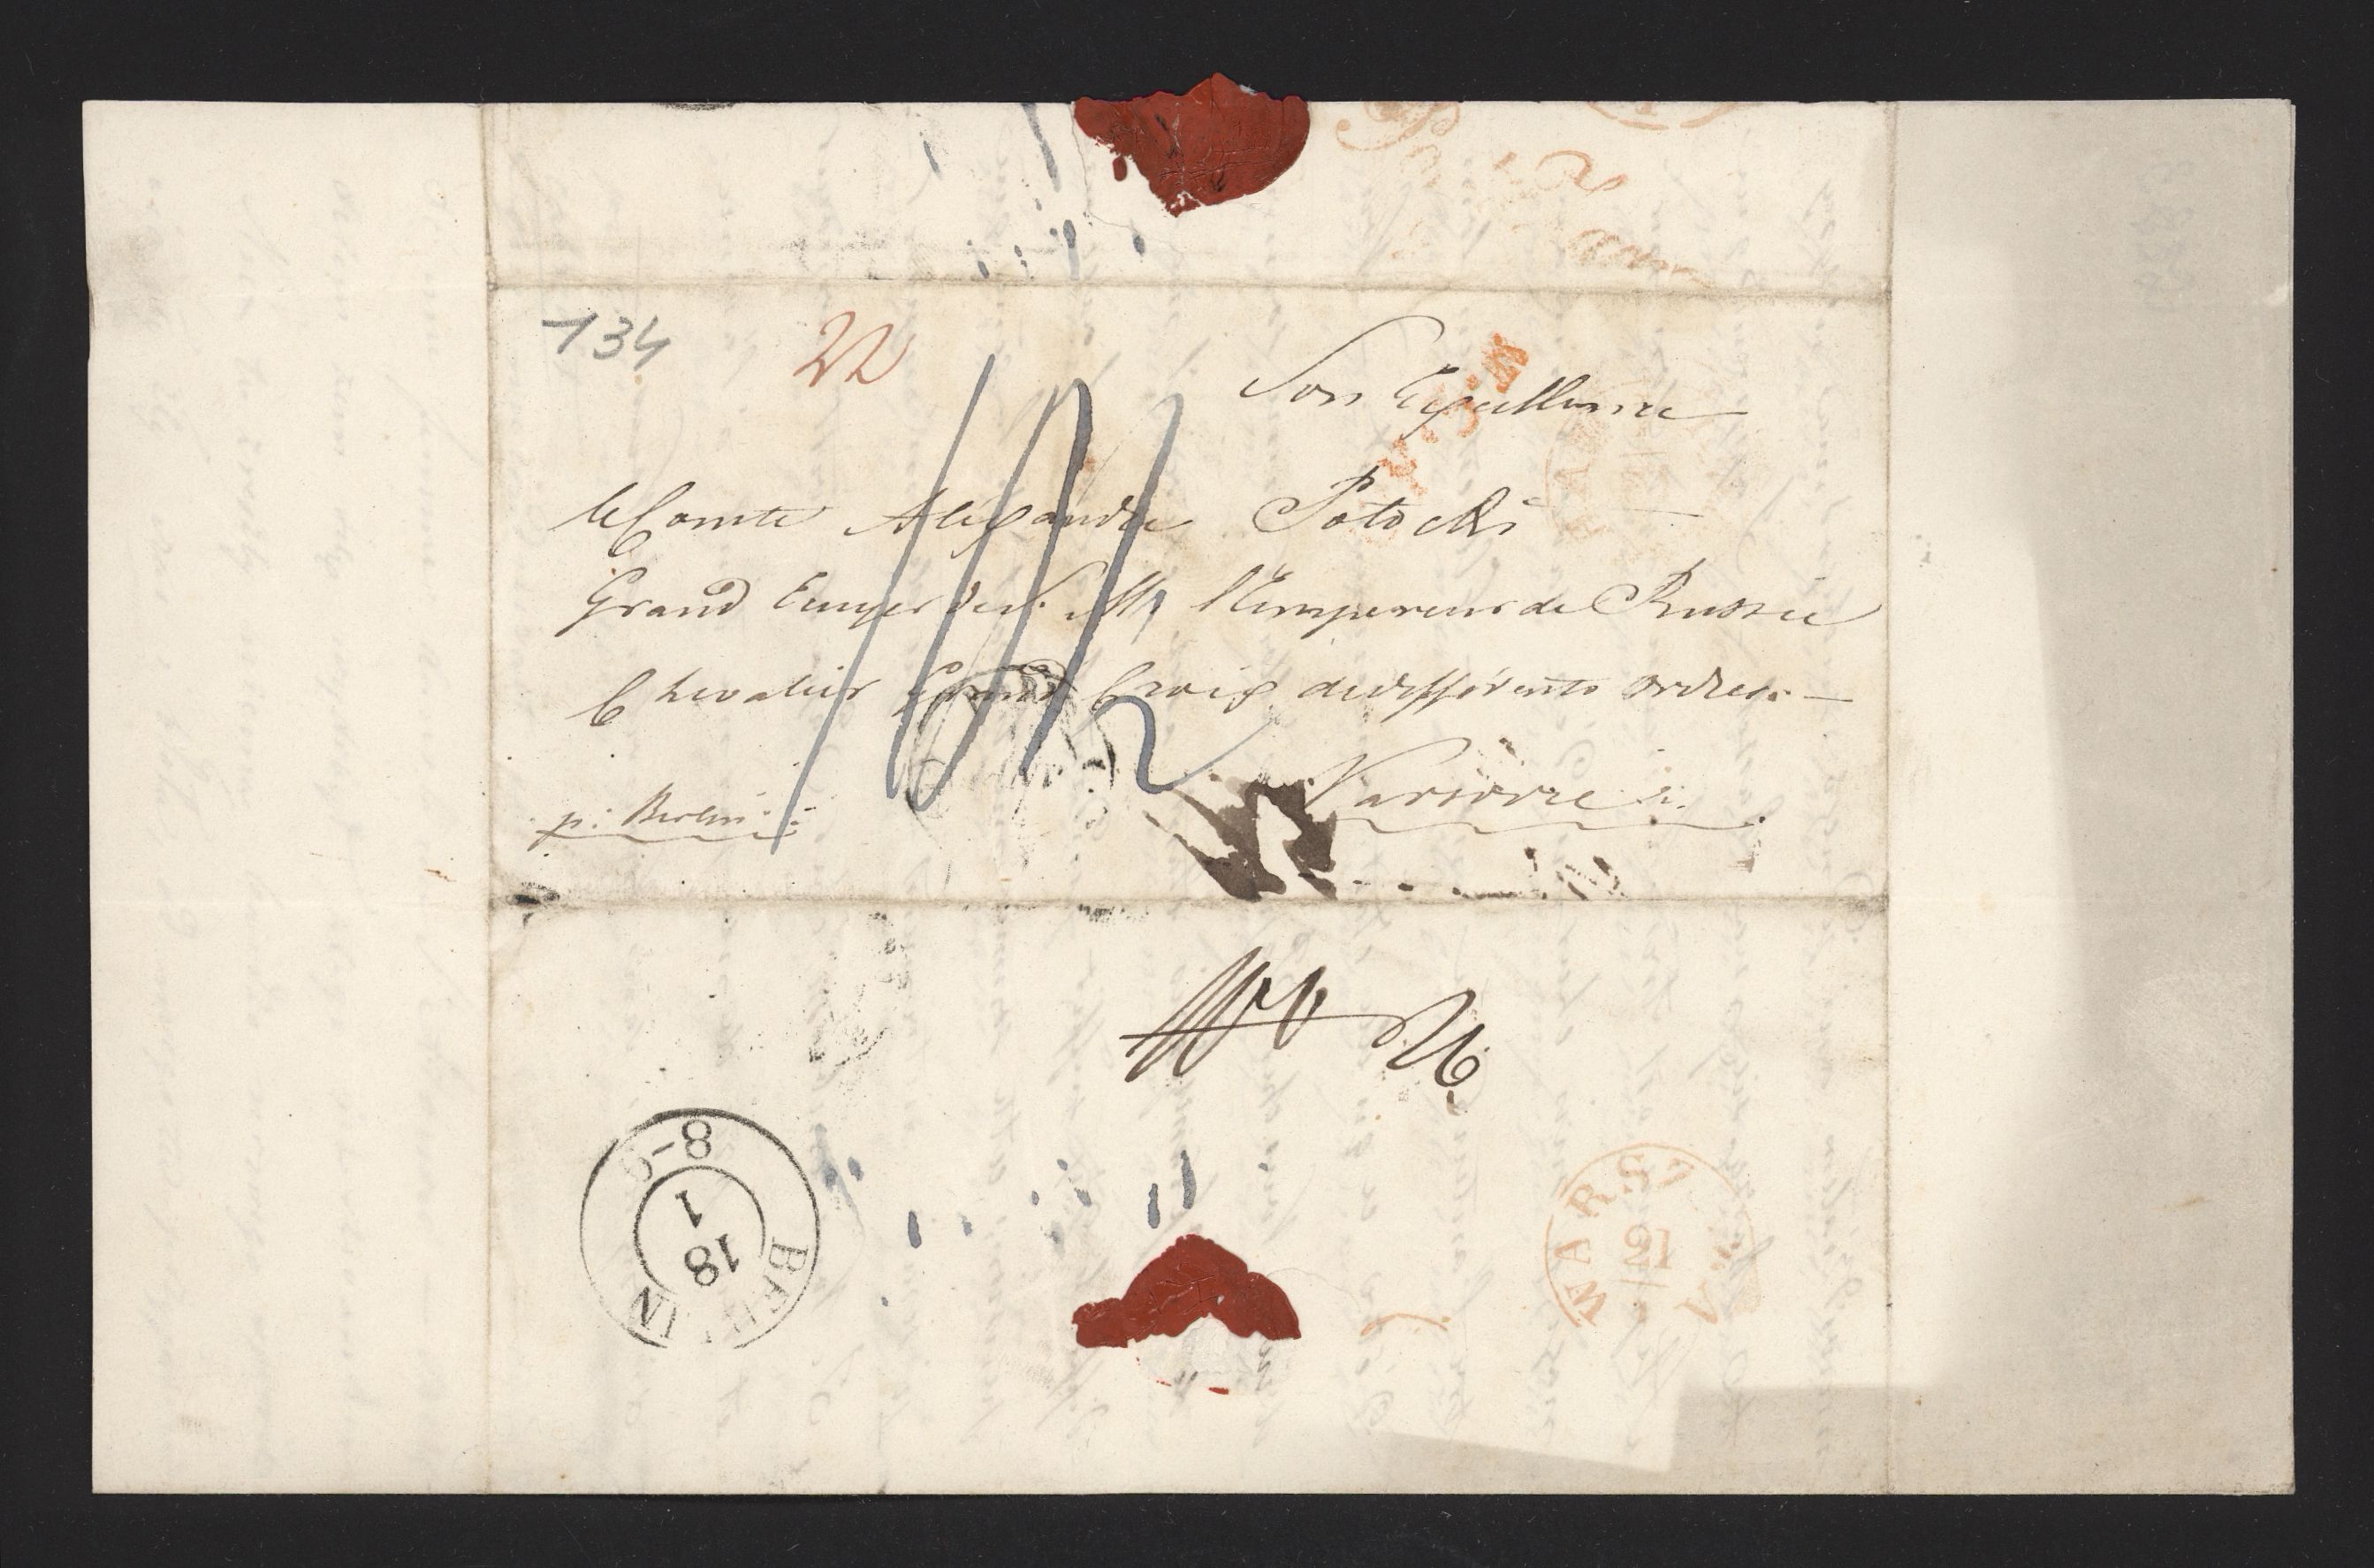 134
22
Son Excellence
le Comte Alexandre Potocki
Grand Ecuyer de S. M. l'Empereur de Russie
Chevalier Grand Croix de différents ordres
p: Berlin
Varsovie
BERLIN
18
1
8-9
WARSZ
21